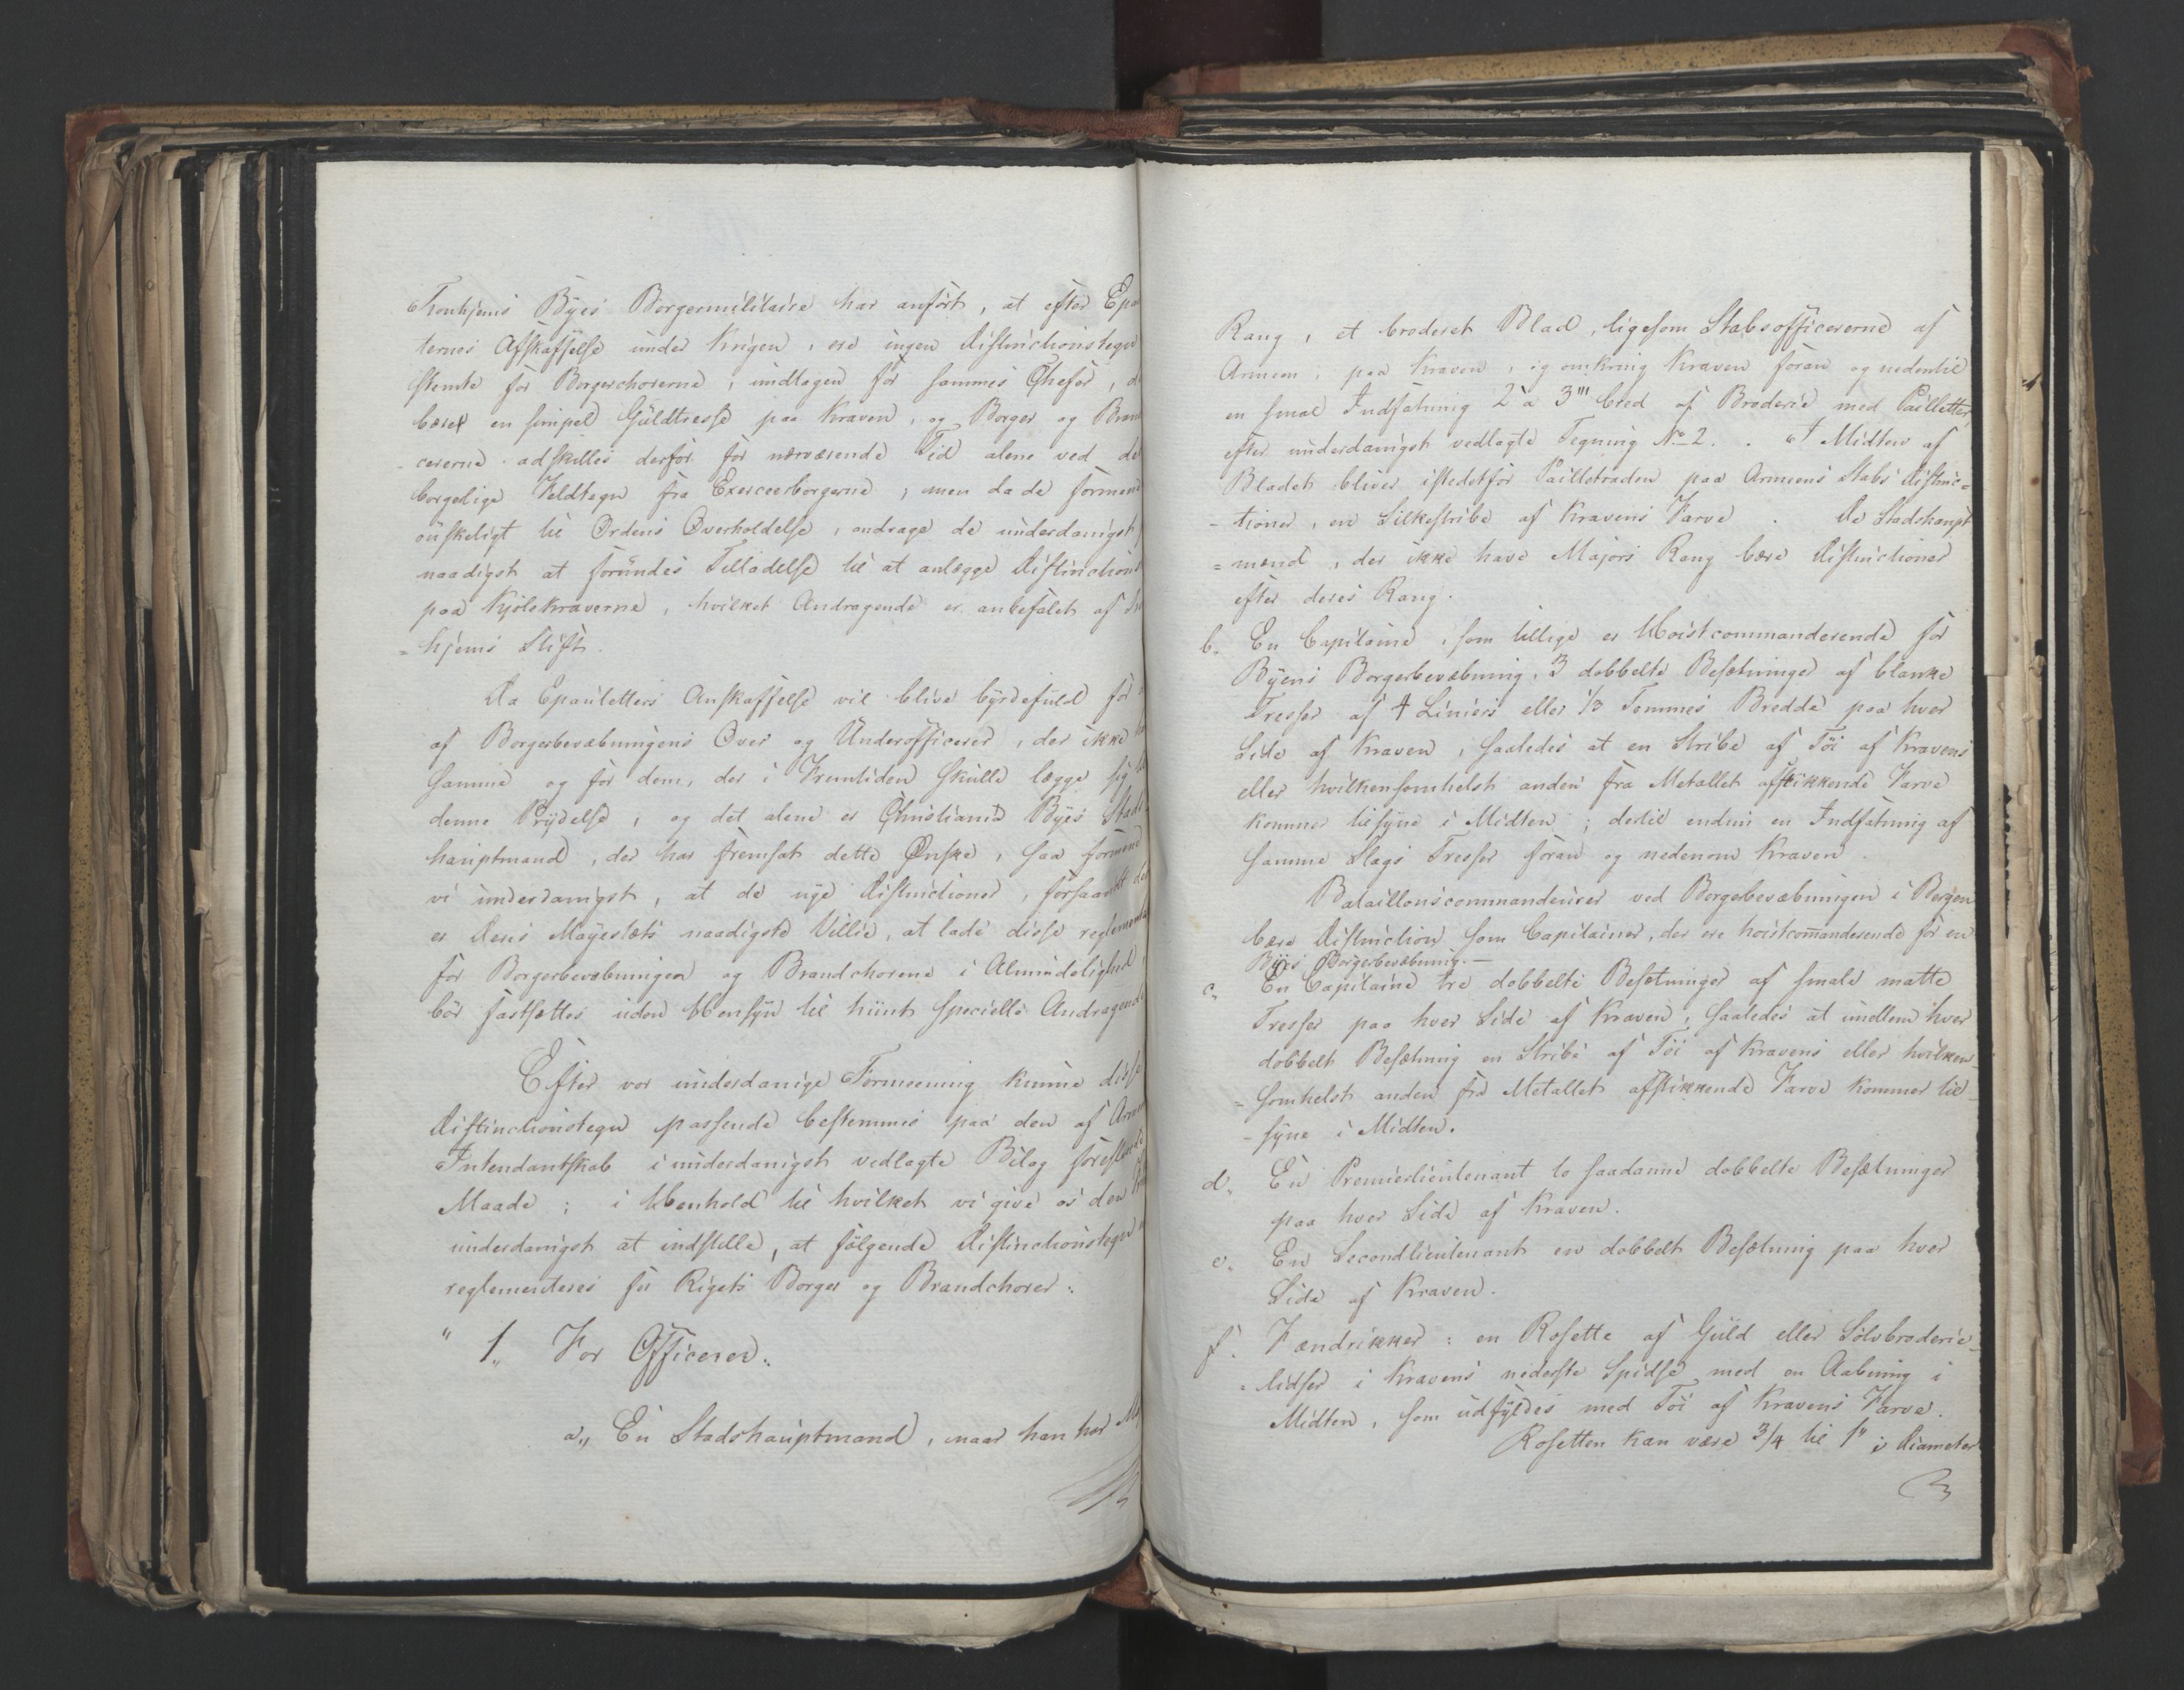 Tronhjems Byes Borgermilitaire har anført, at efter Epa
ternes Afskaffelse under Krigen, ere ingen Distinctionstegn
stemte for Borgerchorerne, undtagen for sammes Chefer, d
bærer en simpel Guldtresse paa Kraven, og Borger og Bran
cererne adskilles derfor for nærværende Tid alene ved de
borgerlige Feldtegn fra Exerceerborgerne, men da de formene
ønskeligt til Ordens Overholdelse, andrage de underdanigst
naadigst at forundes Tilladelse til at anlægge Distinctions
paa Kjolekraverne, hvilket Andragende er anbefalet af
hjems Stift.
Da Epauletters Anskaffelse vil blive byrdefuld for
af Borgerbevæbningens Over og Underofficerer, der ikke
samme og for dem, der i Fremtiden skulle lægge sig
denne Prydelse, og det alene er Christiania Byes Stads
hauptmand, der har fremsat dette Ønske, saa formene
vi underdanigst, at de nye Distinctioner, forsaavidt det
er Deres Mayestæts naadigste Villie, at lade disse reglementere
for Borgerbevæbningen og Brandchorene i Almindelighed,
bør fastsættes uden Hensyn til hiint specielle Andragende
Efter vor underdanige Formeening kunne disse
Distinctionstegn passende bestemmes paa den af Armee
Intendantskab i underdanigst vedlagte Bilag foreslaaede
Maade; i Henhold til hvilket vi give os den
underdanigst at indstille, at følgende Distinctionstegn
reglementeres for Rigets Borger og Brandchorer:
" 1,, For Officerer.
a,, En Stadshauptmand, naar han har Ma
Rang, et broderet Blad, ligesom Stabsofficererne af
Armeen, paa Kraven, og omkring Kraven foran og nedentil
en smal Indfatning 2 a 3''' bred af Broderie med Pailletter,
efter underdanigst vedlagte Tegning No 2. . I Midten af
Bladet bliver istedetfor Pailletraden paa Armeens Stabs Distinc=
-tioner, en Silkestribe af Kravens Farve . De Stadshaupt
=mænd, der ikke have Majors Rang bære Distinctioner
efter deres Rang.
b. En Capitaine, som tillige er Høistcommanderende for
Byens Borgerbevæbning, 3 dobbelte Besætninger af blanke
Tresser af 4 Liniers eller 1/3 Tommes Bredde paa hver
Side af Kraven, saaledes at en Stribe af Töi af Kravens
eller hvilkensomhelst anden fra Metallet afstikkende Farve
kommer tilsyne i Midten; dertil endnu en Indfatning af
samme Slags Tresser foran og nedenom Kraven.
Bataillonscommandeurer ved Borgerbevæbningen i Bergen
bære Distinction som Capitainer, der ere høistcommanderende for en
Byes Borgerbevæbning.—
c. En Capitaine tre dobbelte Besætninger af smale matte
Tresser paa hver Side af Kraven, saaledes at imellem hver
dobbelt Besætning en Stribe af Töi af Kravens eller hvilken
-somhelst anden fra Metallet afstikkende Farve kommer til
-syne i Midten.
d. En Premierlieutenant to saadanne dobbelte Besætninger
paa hver Side af Kraven.
e. En Secondlieutenant en dobbelt Besætning paa hver
Side af Kraven.
f. Fændrikker: en Rosette af Guld eller Sølvbroderie
-lidser i Kravens nederste Spidse med en Aabning i
Midten, som udfyldes med Töi af Kravens Farve.
Rosetten kan være 3/4 til 1" i Diameter